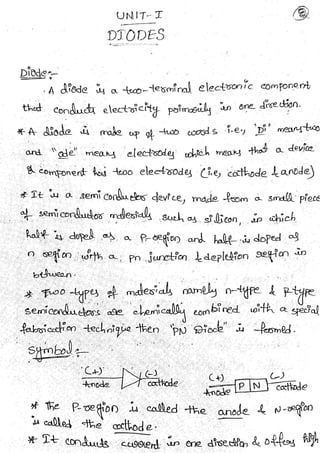 UNIT-I
2
DIODES
Diode:-
. A diode is a two-terminal electronic component
that conducts electricity primarily in one direction.
* A diode is made up of two words i.e., "Di" means two
and "ode" means electrodes which means that a device
& component has two electrodes (i.e, cathode & anode)
* It is a semi conductor device, made from a small piece
of semiconductor materials such as silicon, in which
half is doped as a p-region and half is doped as
n region with a pn junction & depletion region in
between.
* Two-types of materials namely n-type & p-type
semiconductors are chemically combined with a special
fabrication technique then "PN Diode" is formed.
Symbol:-
(+) (-) (+) (-)
Anode cathode Anode P N cathode
* The P-region is called the anode & N-region
is called the cathode.
* It conducts current in one direction & offers high